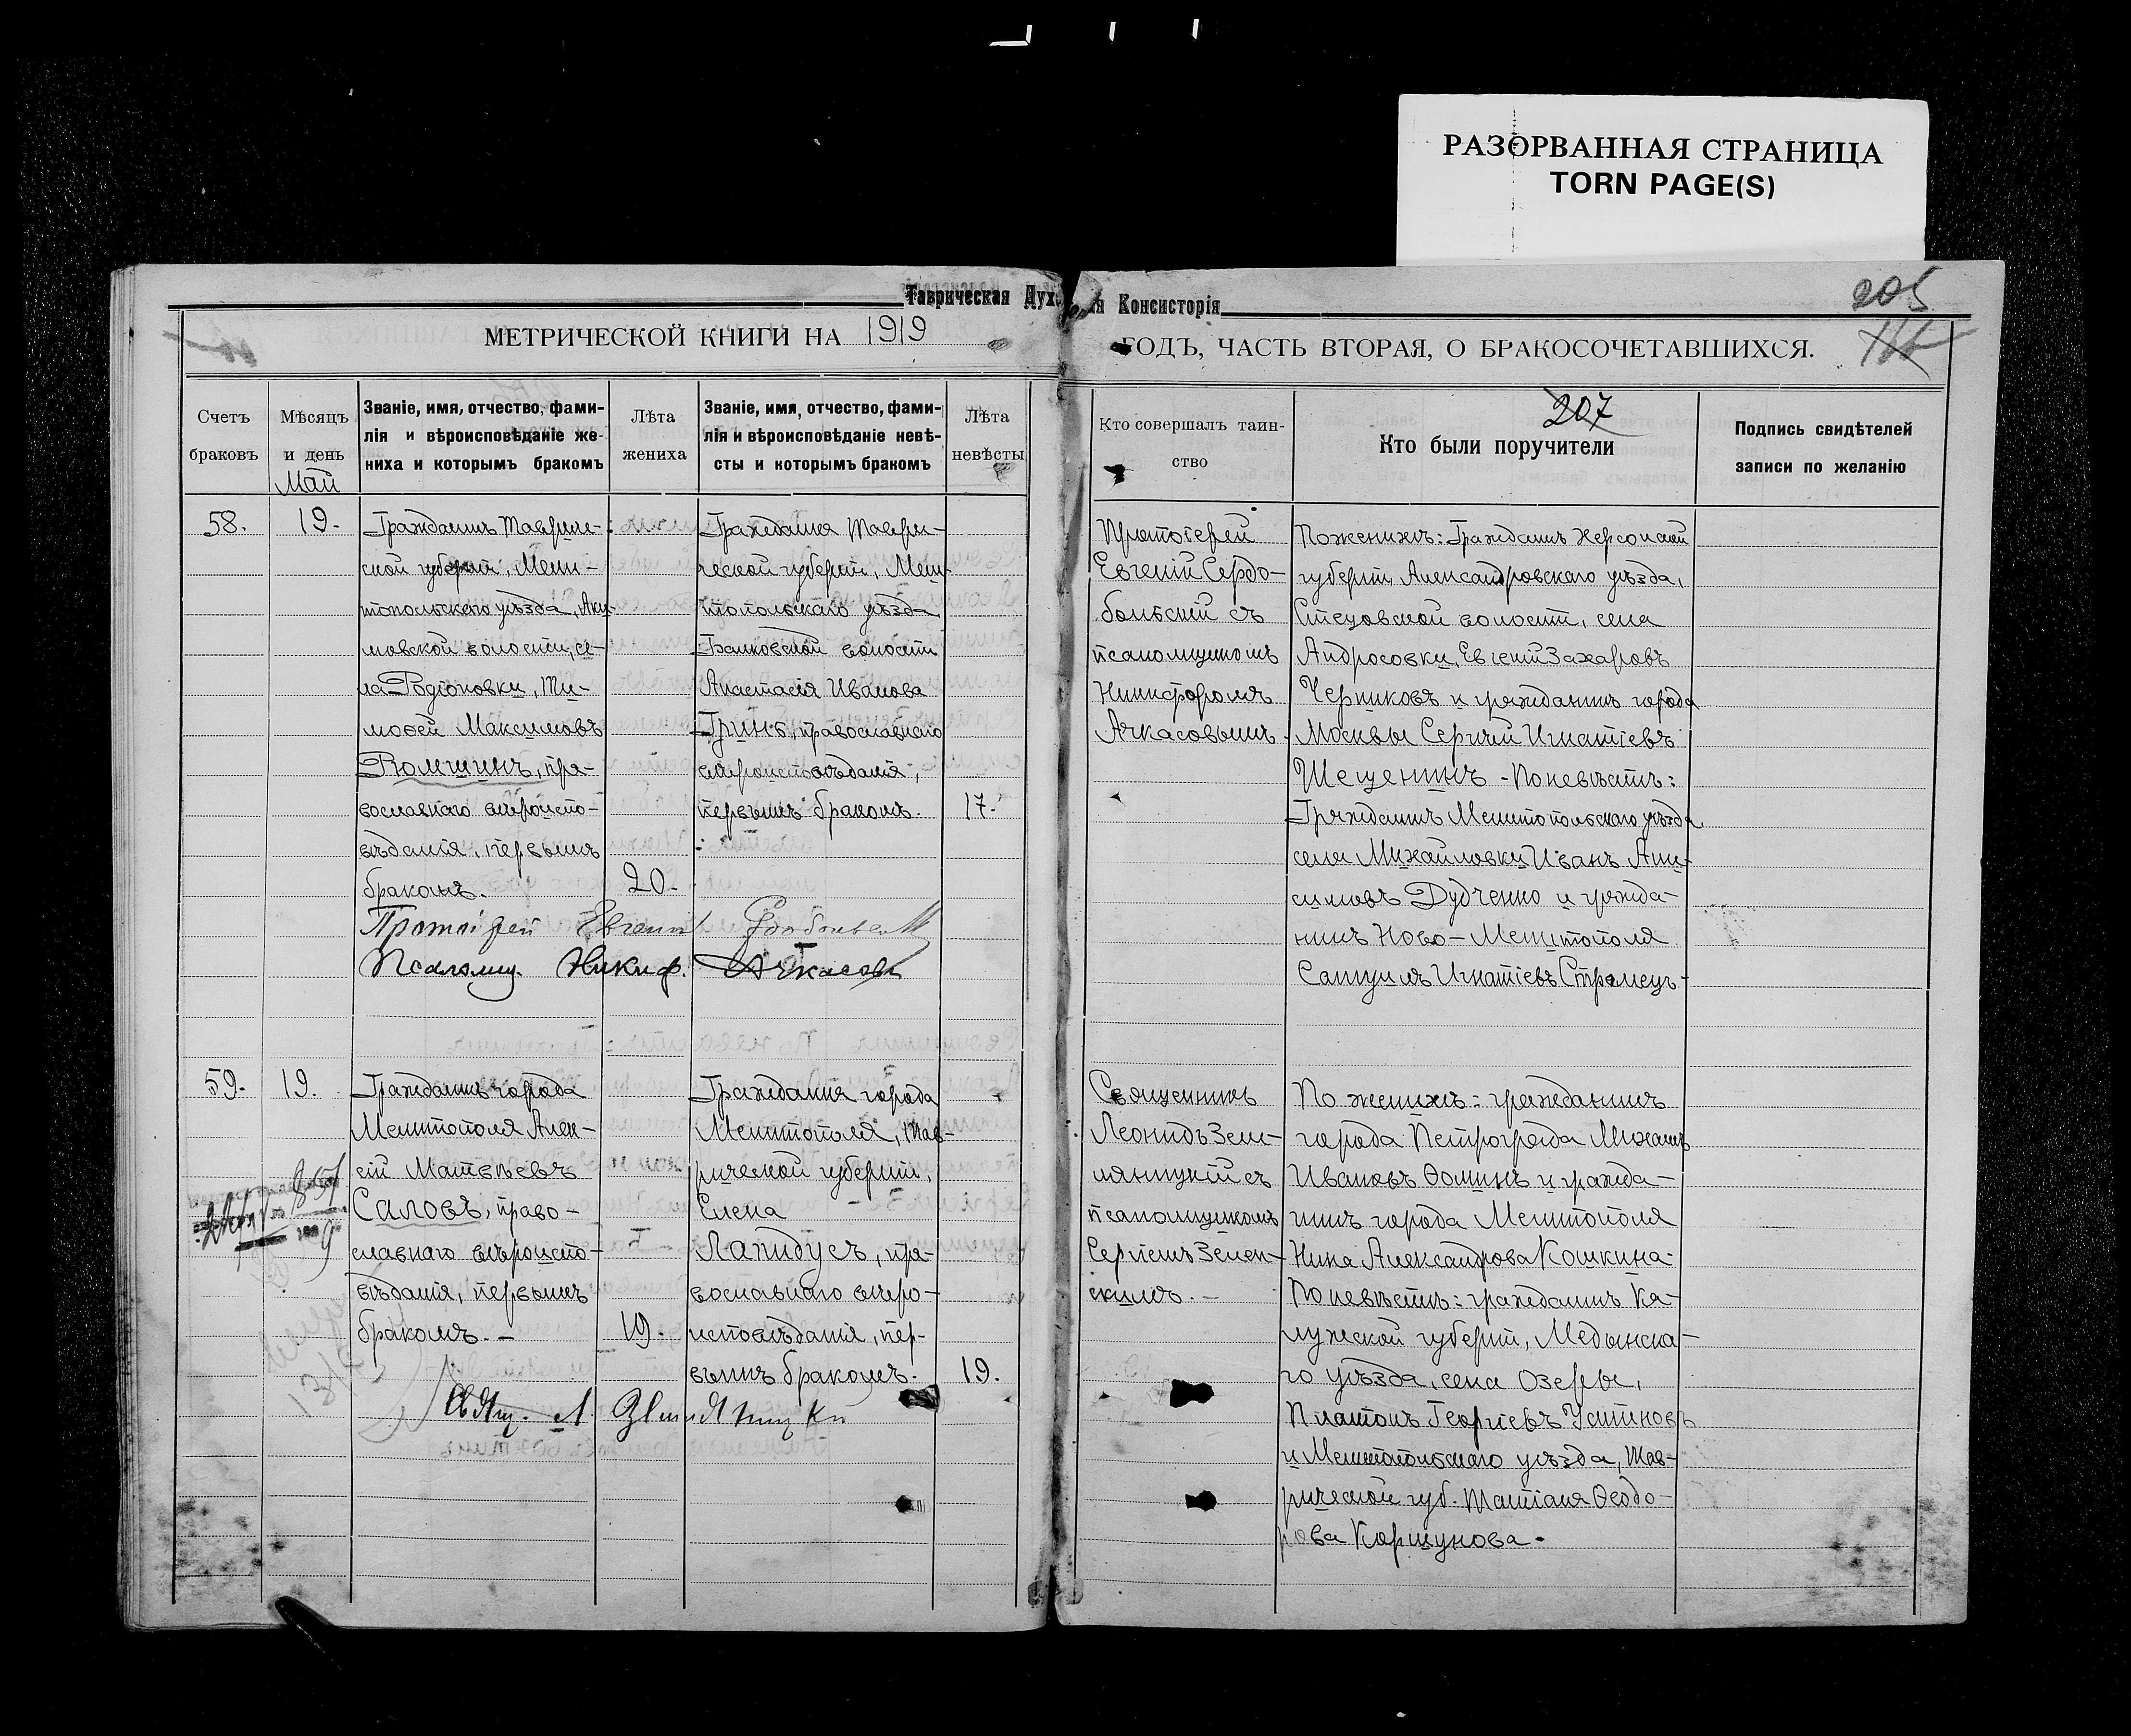 РАЗОРВАННАЯ СТРАНИЦА
TORN PAGE(S)
Таврическая Дух
ая Консисторія
205
МЕТРИЧЕСКОЙ КНИГИ НА 1919
ГОДЪ, ЧАСТЬ ВТОРАЯ, О БРАКОСОЧЕТАВШИХСЯ.
207
Счетъ
браковъ
Мѣсяцъ
и день
Май
Званіе, имя, отчество, фами-
лія и вѣроисповѣданіе же-
ниха и которымъ бракомъ
Лѣта
жениха
Званіе, имя, отчество, фами-
лія и вѣроисповѣданіе невѣ-
сты и которымъ бракомъ
Лѣта
невѣсты
Кто совершалъ таин-
ство
Кто были поручители
Подпись свидѣтелей
записи по желанію
58.
19.
Гражданинъ Тавриче-
ской губерніи, Мели-
топольскаго уѣзда, Аки-
мовской волости, се-
ла Родіоновки, Ти-
моѳей Максимовъ
Ромшинъ, пра-
вославнаго вѣроиспо-
вѣданія, первымъ
бракомъ.
20.
Гражданка Таври-
ческой губерніи, Мели-
топольскаго уѣзда
Балковской волости
Анастасія Иванова
Гринь, православнаго
вѣроисповѣданія,
первымъ бракомъ.
17.
Протоіерей
Евгеній Сердо-
больскій съ
псаломщикомъ
Никифоромъ
Ачкасовымъ.
По женихѣ: Гражданинъ Херсонской
губерніи Александровскаго уѣзда,
волости, села
Андросовки, Евгеній Захаровъ
Черниковъ и гражданинъ города
Москвы Сергѣй Игнатіевъ
Шещенинъ - По невѣстѣ:
Гражданинъ Мелитопольскаго уѣзда
села Михайловки Иванъ Ани-
симовъ Дудченко и гражда-
нинъ Ново-Мелитополя
Самуилъ Игнатіевъ
Протоіерей Евгеній Сердобольскій
Псаломщ. Никиф. Ачкасовъ
59.
19.
Гражданинъ города
Мелитополя Алек-
сій Матвѣевъ
Саловъ, право-
славнаго вѣроиспо-
вѣданія, первымъ
бракомъ. -
19.
Гражданка города
Мелитополя, Тав-
рической губерніи,
Елена
Лапидусъ, пра-
вославнаго вѣро-
исповѣданія, пер-
вымъ бракомъ.
19.
Священникъ
Леонидъ Зем-
ляницкій съ
псаломщикомъ
Сергіемъ Зелен-
скимъ. -
По женихѣ: гражданинъ
города Петрограда Михаилъ
Ивановъ Ѳоминъ и гражда-
нинъ города Мелитополя
Нина Александрова Кошкина.
По невѣстѣ: гражданинъ Ка-
лужской губерніи, Медынска-
го уѣзда, села Озеры,
Платонъ Георгіевъ Устиновъ
и Мелитопольскаго уѣзда, Тав-
рической губ. Татіана Ѳеодо-
рова Коршунова.
Свящ. Л. Земляницкій